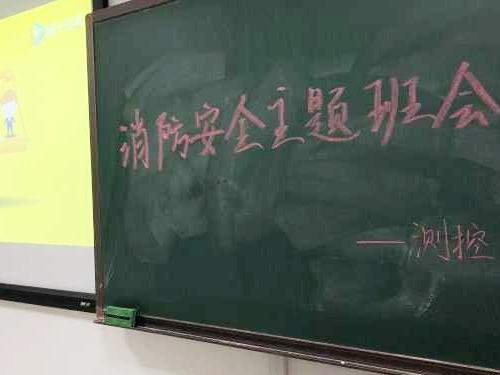 消防安全主题班会
——测控